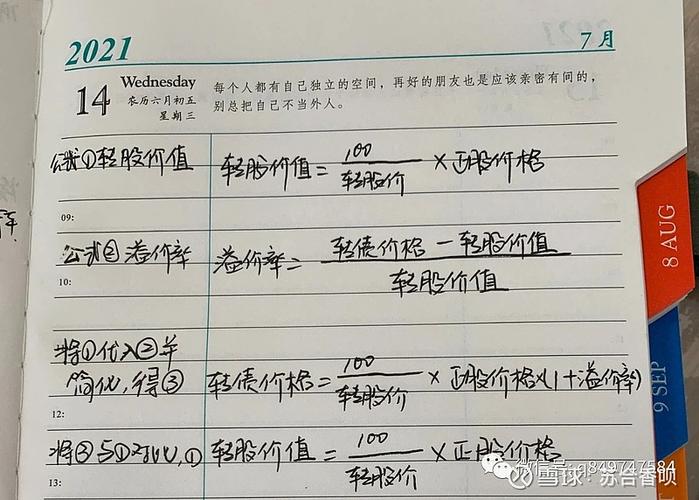 2021
7月
14
Wednesday
农历六月初五
星期三
每个人都有自己独立的空间，再好的朋友也是应该亲密有间的，
别总把自己不当外人。
公式①转股价值 转股价值=100/转股价×正股价格
09:
公式②溢价率 溢价率=转债价格-转股价值/转股价值
10:
将①代入②并
简化,得③ 转债价格=100/转股价×正股价格×(1+溢价率)
12:
将③与①对比,① 转股价值=100/转股价×正股价格
13:
8 AUG
9 SEP
微信号: q849747584
雪球：苏台香呗